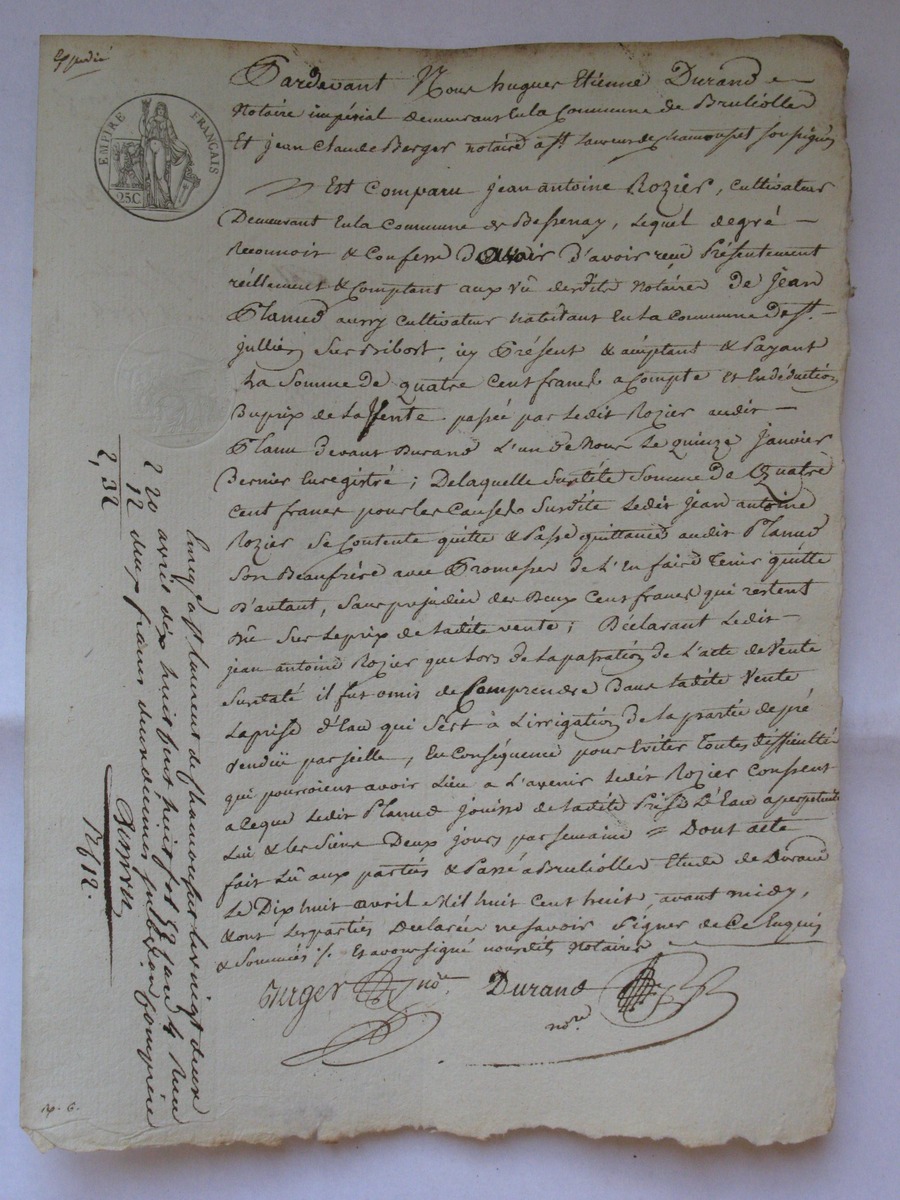 Expedié
EMPIRE FRANÇAIS
25C
Pardevant Nous hugues Etienne Durand
Notaire impérial demeurant En la Commune de Brulliolles
Et jean Claude Berger notaire a St. Laurent de chamousset soussignés
Est comparu jean antoine Rozier, cultivateur
Demeurant En la Commune de Bessenay, Lequel de gré
Reconnoit & Confesse d'avoir reçu Présentement
réellement & Comptant aux vû desdits Notaires de jean
Planud aussy cultivateur habitant En la Commune de St.
jullien Sur Bibost, icy Présent & acceptant & Payant
La Somme de quatre cent francs a Compte et En déduction
Du prix de La Vente passée par Ledit Rozier audit
Planu devant Durand L'un de Nous Le quinze janvier
Dernier Enregistré; De laquelle Susdite Somme de Quatre
cent francs pour les Causes Susdite Ledit jean antoine
Rozier Se Contente quitte & Passe quittance audit Planud
Son Beaufrére avec Promesses de L'En faire Tenir quitte
D'autant, Sans prejudice des Deux Cent francs qui restent
Dû Sur Le prix de Ladite vente; Déclarant Ledit
jean antoine Rozier que Lors de La passation de L'acte de Vente
Susdaté il fut omis de Comprendre Dans Ladite Vente
La prise d'Eau qui Sert à L'irrigation de La partie de pré
Vendüe par icelle, En Conséquence pour Eviter Toutes difficultés
qui pourroient avoir Lieu a L'avenir Ledit Rozier Consent
a Ce que Ledit Planud jouisse de Ladite Prise D'Eau a perpetuité
Lui & Les Siens Deux jours par Semaine = Dont acte
fait Lû aux parties & Passé a Brullioles Etude de Durand
Le Dix huit avril Mil huit Cent huit, avant midy,
& ont Les parties Déclarées ne Savoir Signer de Ce Enquis
& Sommés ./. Et avons signé nous dits Notaires
Berger nore Durand
nore
Enregé a St laurent de chamousset le vingt deux
avril dix huit cent huit fo 52
deux francs douze centimes
2 20
12
2, 32
Rf 12.
Rp. G.